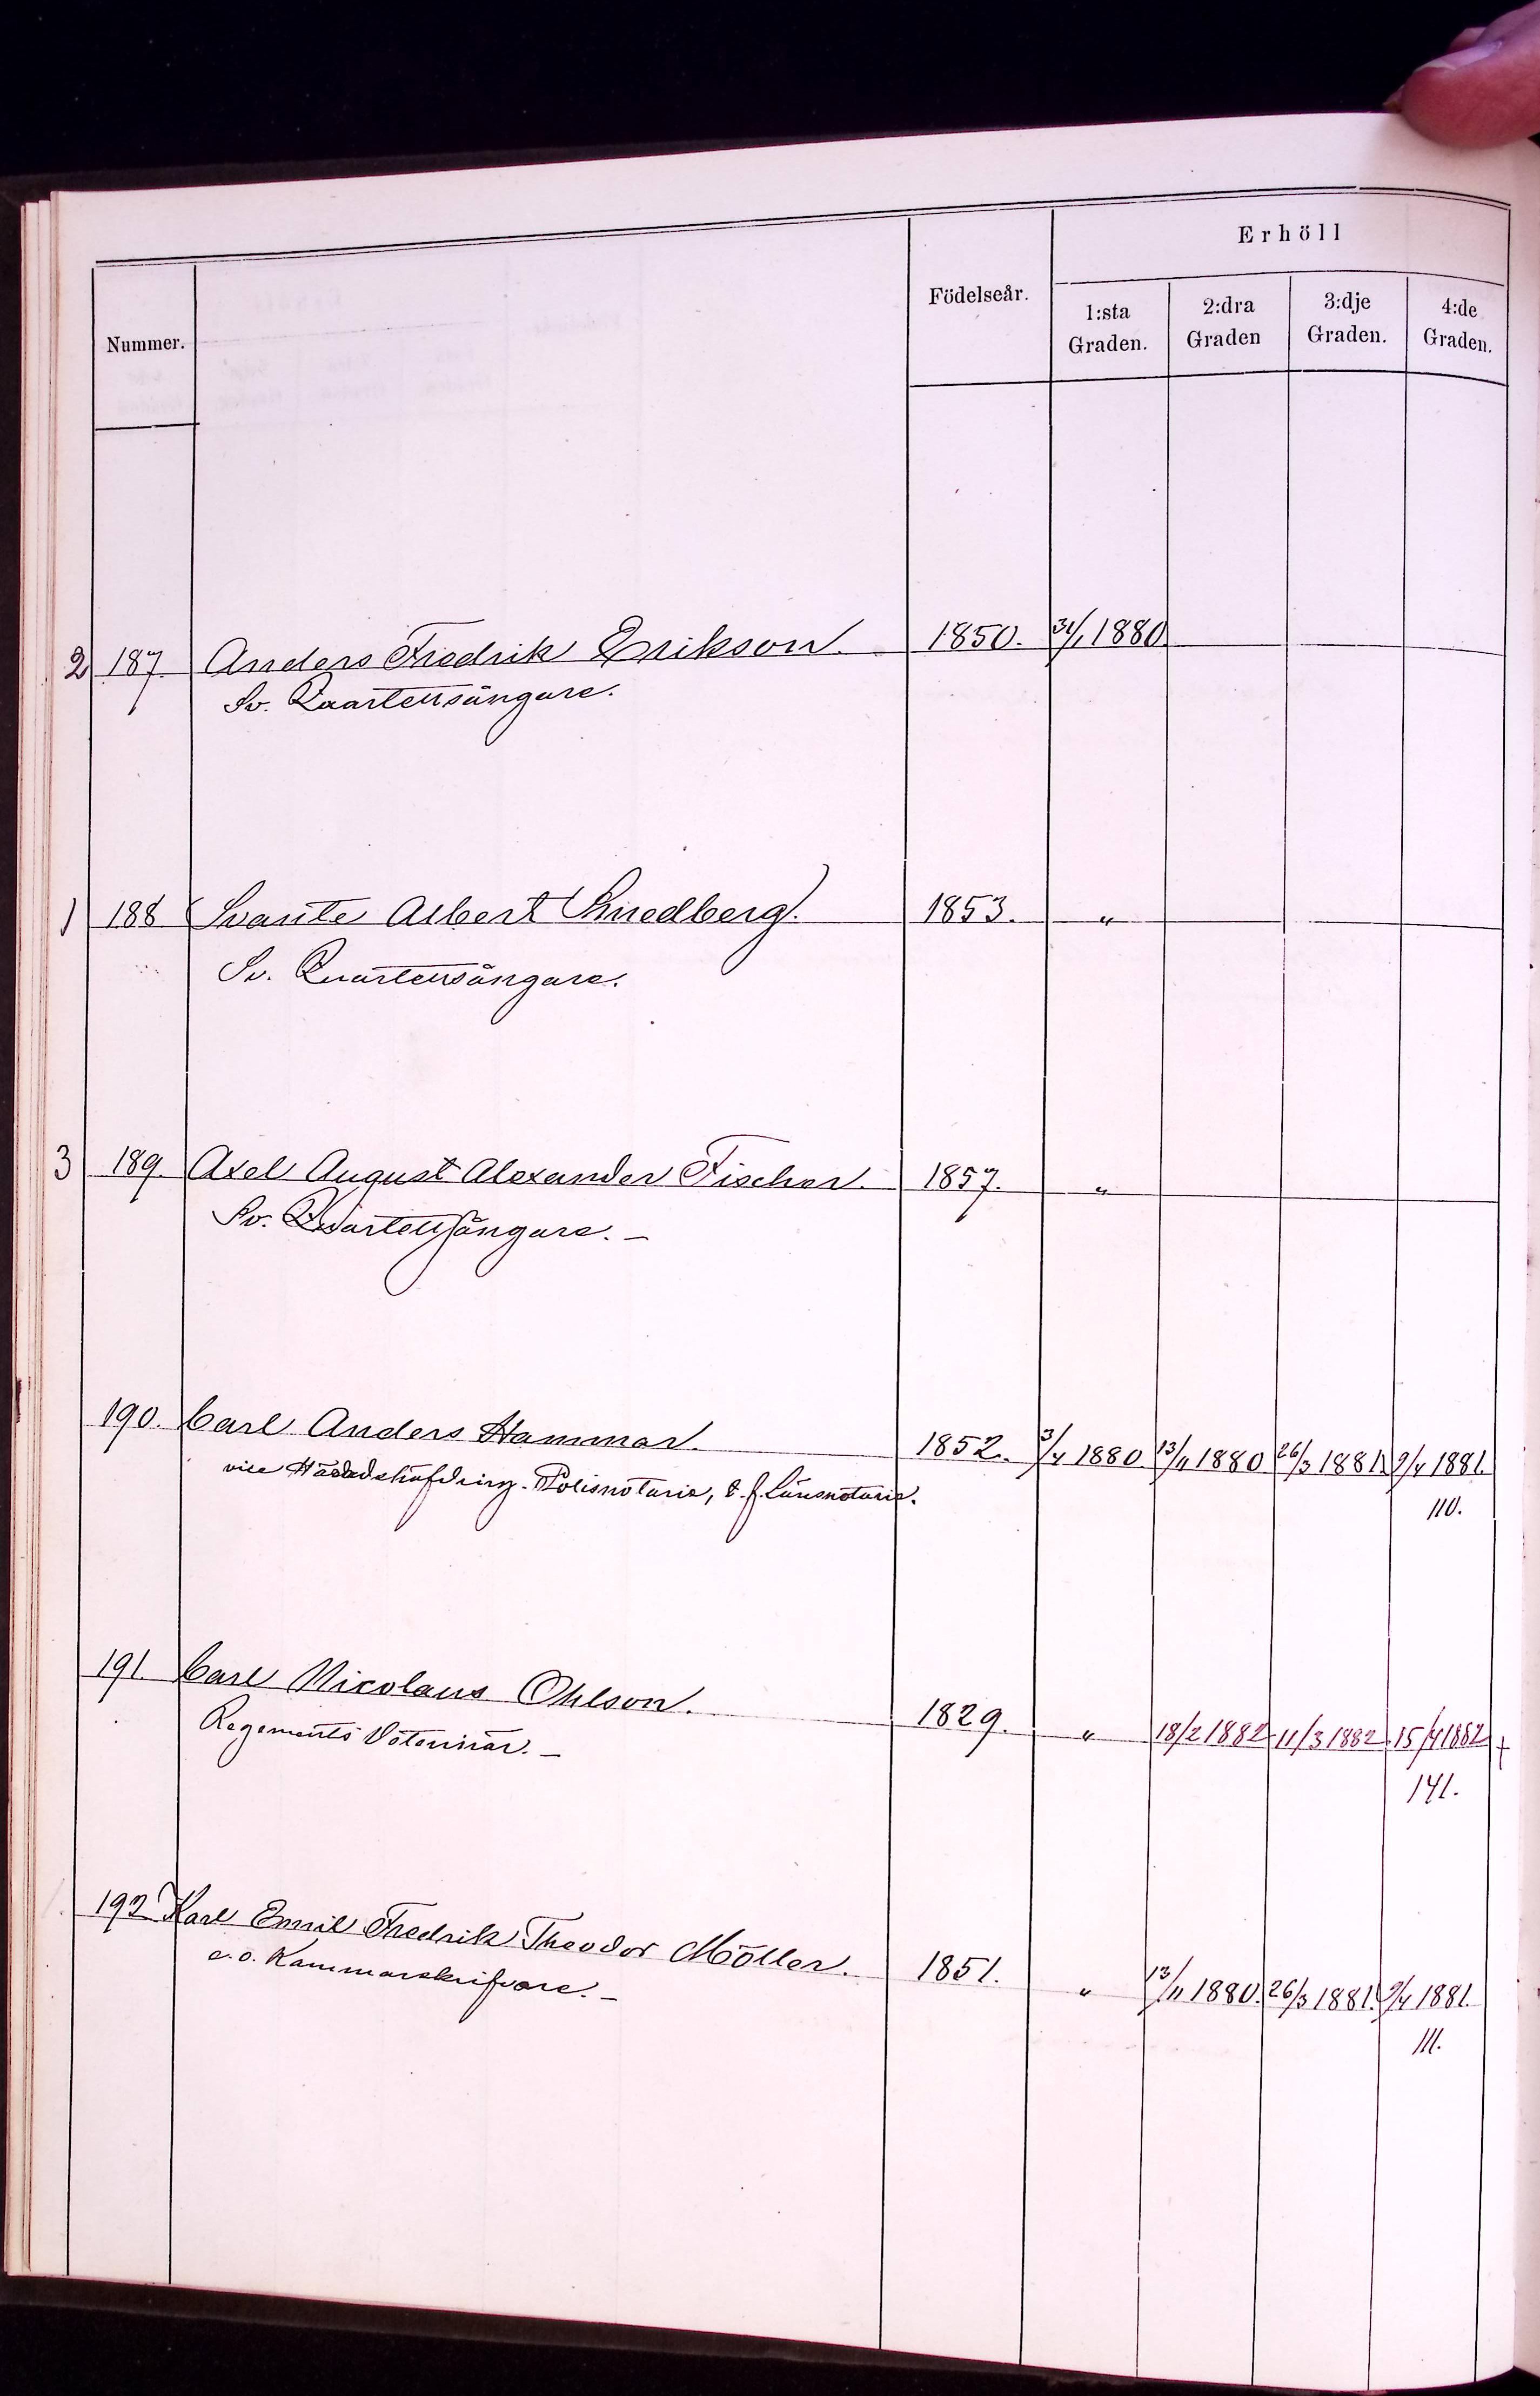 Nummer.
Födelseår.
Erhöll
1:sta Graden.
2:dra Graden
3:dje Graden.
4:de Graden.
2 187. Anders Fredrik Erikson. 1850. 31/1 1880
Sv. Quartettsångare.
1 188 Svante Albert Smedberg. 1853. "
Sv. Quartettsångare.
3 189. Axel August Alexander Fischer. 1857. "
Sv. Quartettsångare. –
190. Carl Anders Hammar. 1852. 3/4 1880 13/11 1880 26/3 1881. 9/4 1881.
vice Häradshöfding. Polisnotarie, t. f. Länsnotarie.
110.
191. Carl Nicolaus Ohlson. 1829. " 18/2 1882 11/3 1882. 15/4 1882 +
Regements Veterinär. –
141.
192 Karl Emil Fredrik Theodor Möller. 1851. " 13/11 1880. 26/3 1881. 9/4 1881.
e. o. Kammarskrifvare. –
111.